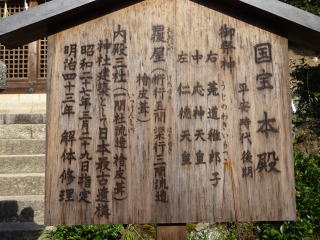 国宝 本殿
平安時代後期
御祭神
右 菟道稚郎子
中 応神天皇
左 仁徳天皇
覆屋(桁行五間梁行三間流造
檜皮葺)
内殿三社(一間社流造 檜皮葺)
神社建築として日本最古遺構
昭和二十七年三月二十九日指定
明治四十三年 解体修理